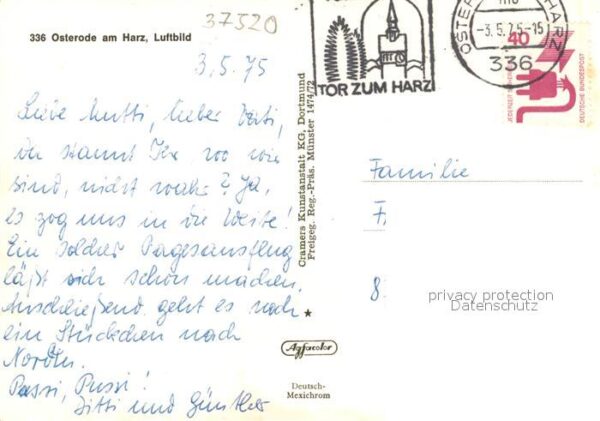 37520
336 Osterode am Harz, Luftbild
3.5.75
Liebe Mutti, lieber Vati,
da staunt Ihr, wo wir
sind, nicht wahr? Ja,
es zog uns in die Weite!
Ein solcher Tagesausflug
läßt sich schon machen.
Anschließend geht es noch
ein Stückchen nach
Norden.
Bussi, Bussi!
Ditti und Günther
Cramers Kunstanstalt KG, Dortmund
Freigeg. Reg.-Präs. Münster 1474/72
Agfacolor
Deutsch-
Mexichrom
TOR ZUM HARZ
OSTERODE HARZ
-3.5.75-15
336
40
JEDERZEIT SICHERHEIT
DEUTSCHE BUNDESPOST
Familie
F.
8.
privacy protection
Datenschutz